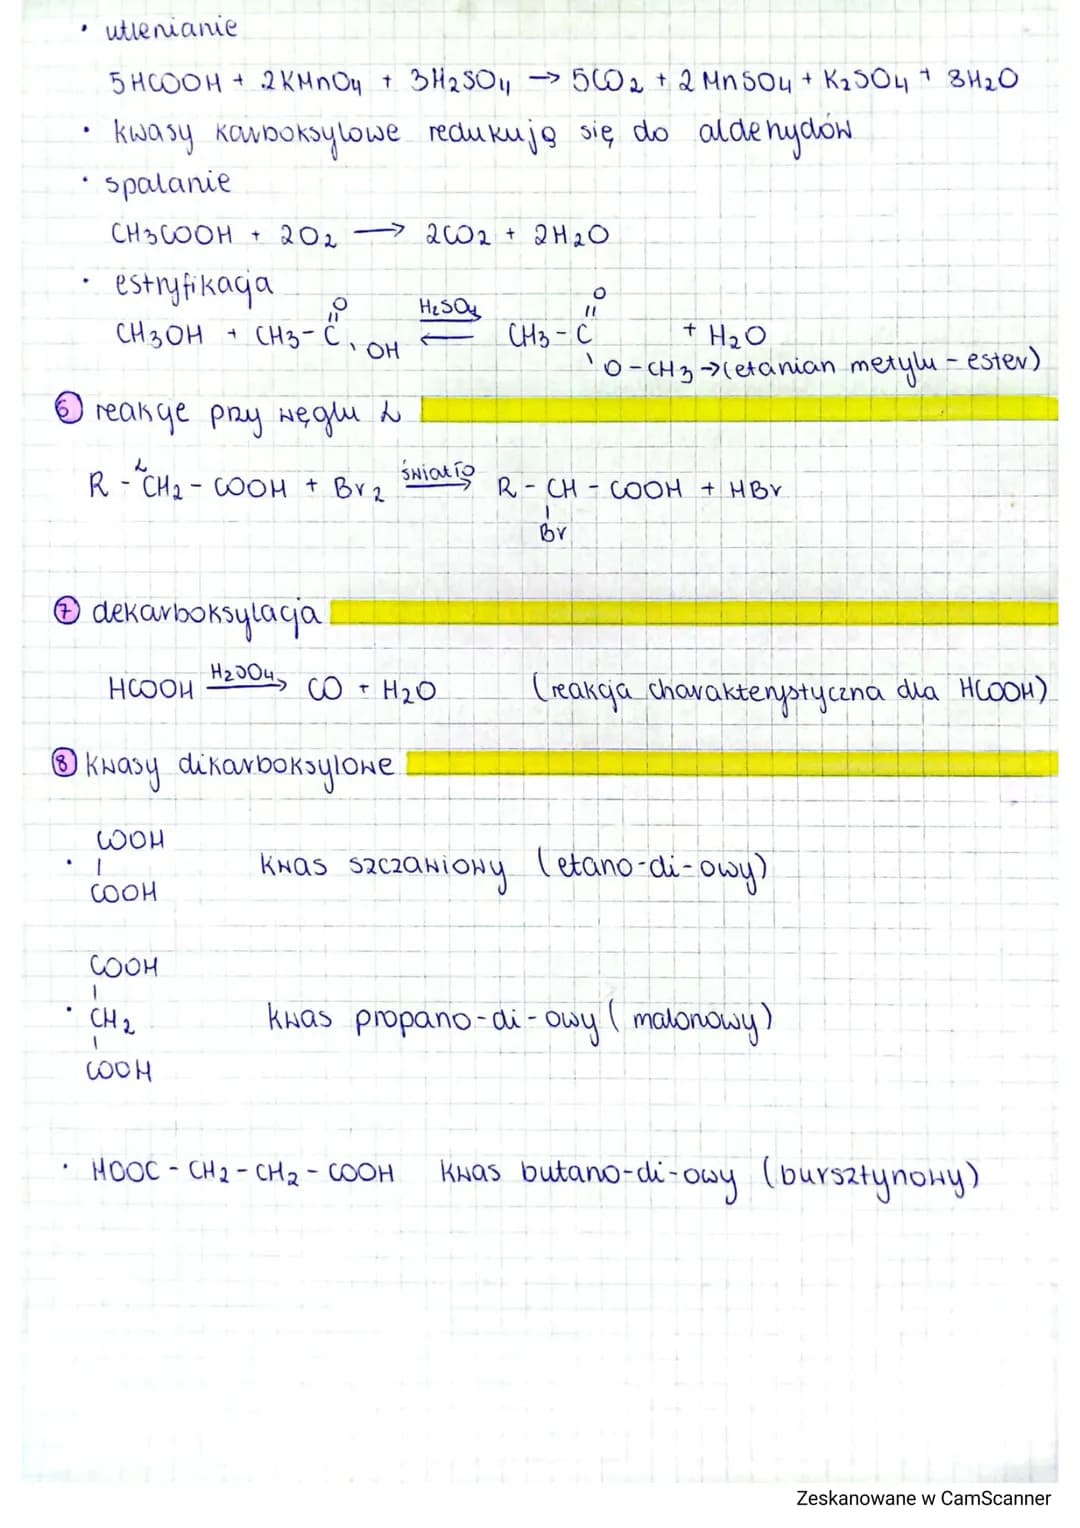 • utlenianie
5HCOOH + 2KMnO4 + 3H2SO4 → 5CO2 + 2MnSO4 + K2SO4 + 8H2O
• kwasy karboksylowe redukują się do aldehydów
• spalanie
CH3COOH + 2O2 → 2CO2 + 2H2O
• estryfikacja
O H2SO4 O
CH3OH + CH3-C ⇌ CH3-C + H2O
OH O-CH3 → (etanian metylu - ester)
6 reakcje przy węglu α
α światło
R-CH2-COOH + Br2 → R-CH-COOH + HBr
Br
7 dekarboksylacja
H2SO4
HCOOH → CO + H2O (reakcja charakterystyczna dla HCOOH)
8 kwasy dikarboksylowe
COOH
• | kwas szczawiowy (etano-di-owy)
COOH
COOH
|
• CH2 kwas propano-di-owy (malonowy)
|
COOH
• HOOC-CH2-CH2-COOH kwas butano-di-owy (bursztynowy)
Zeskanowane w CamScanner